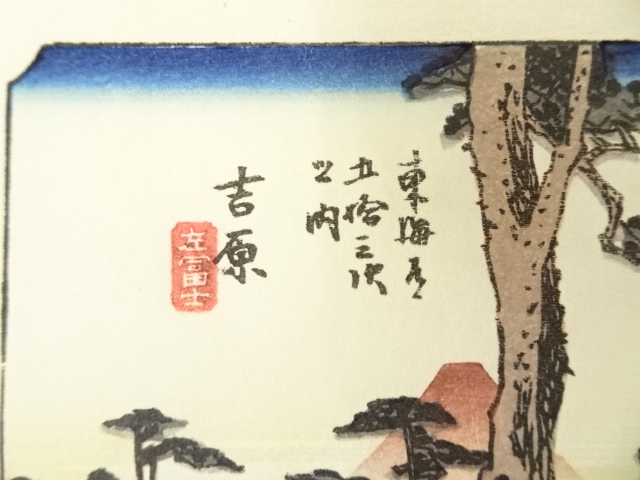 東海道
五拾三次
之内
吉原
左富士